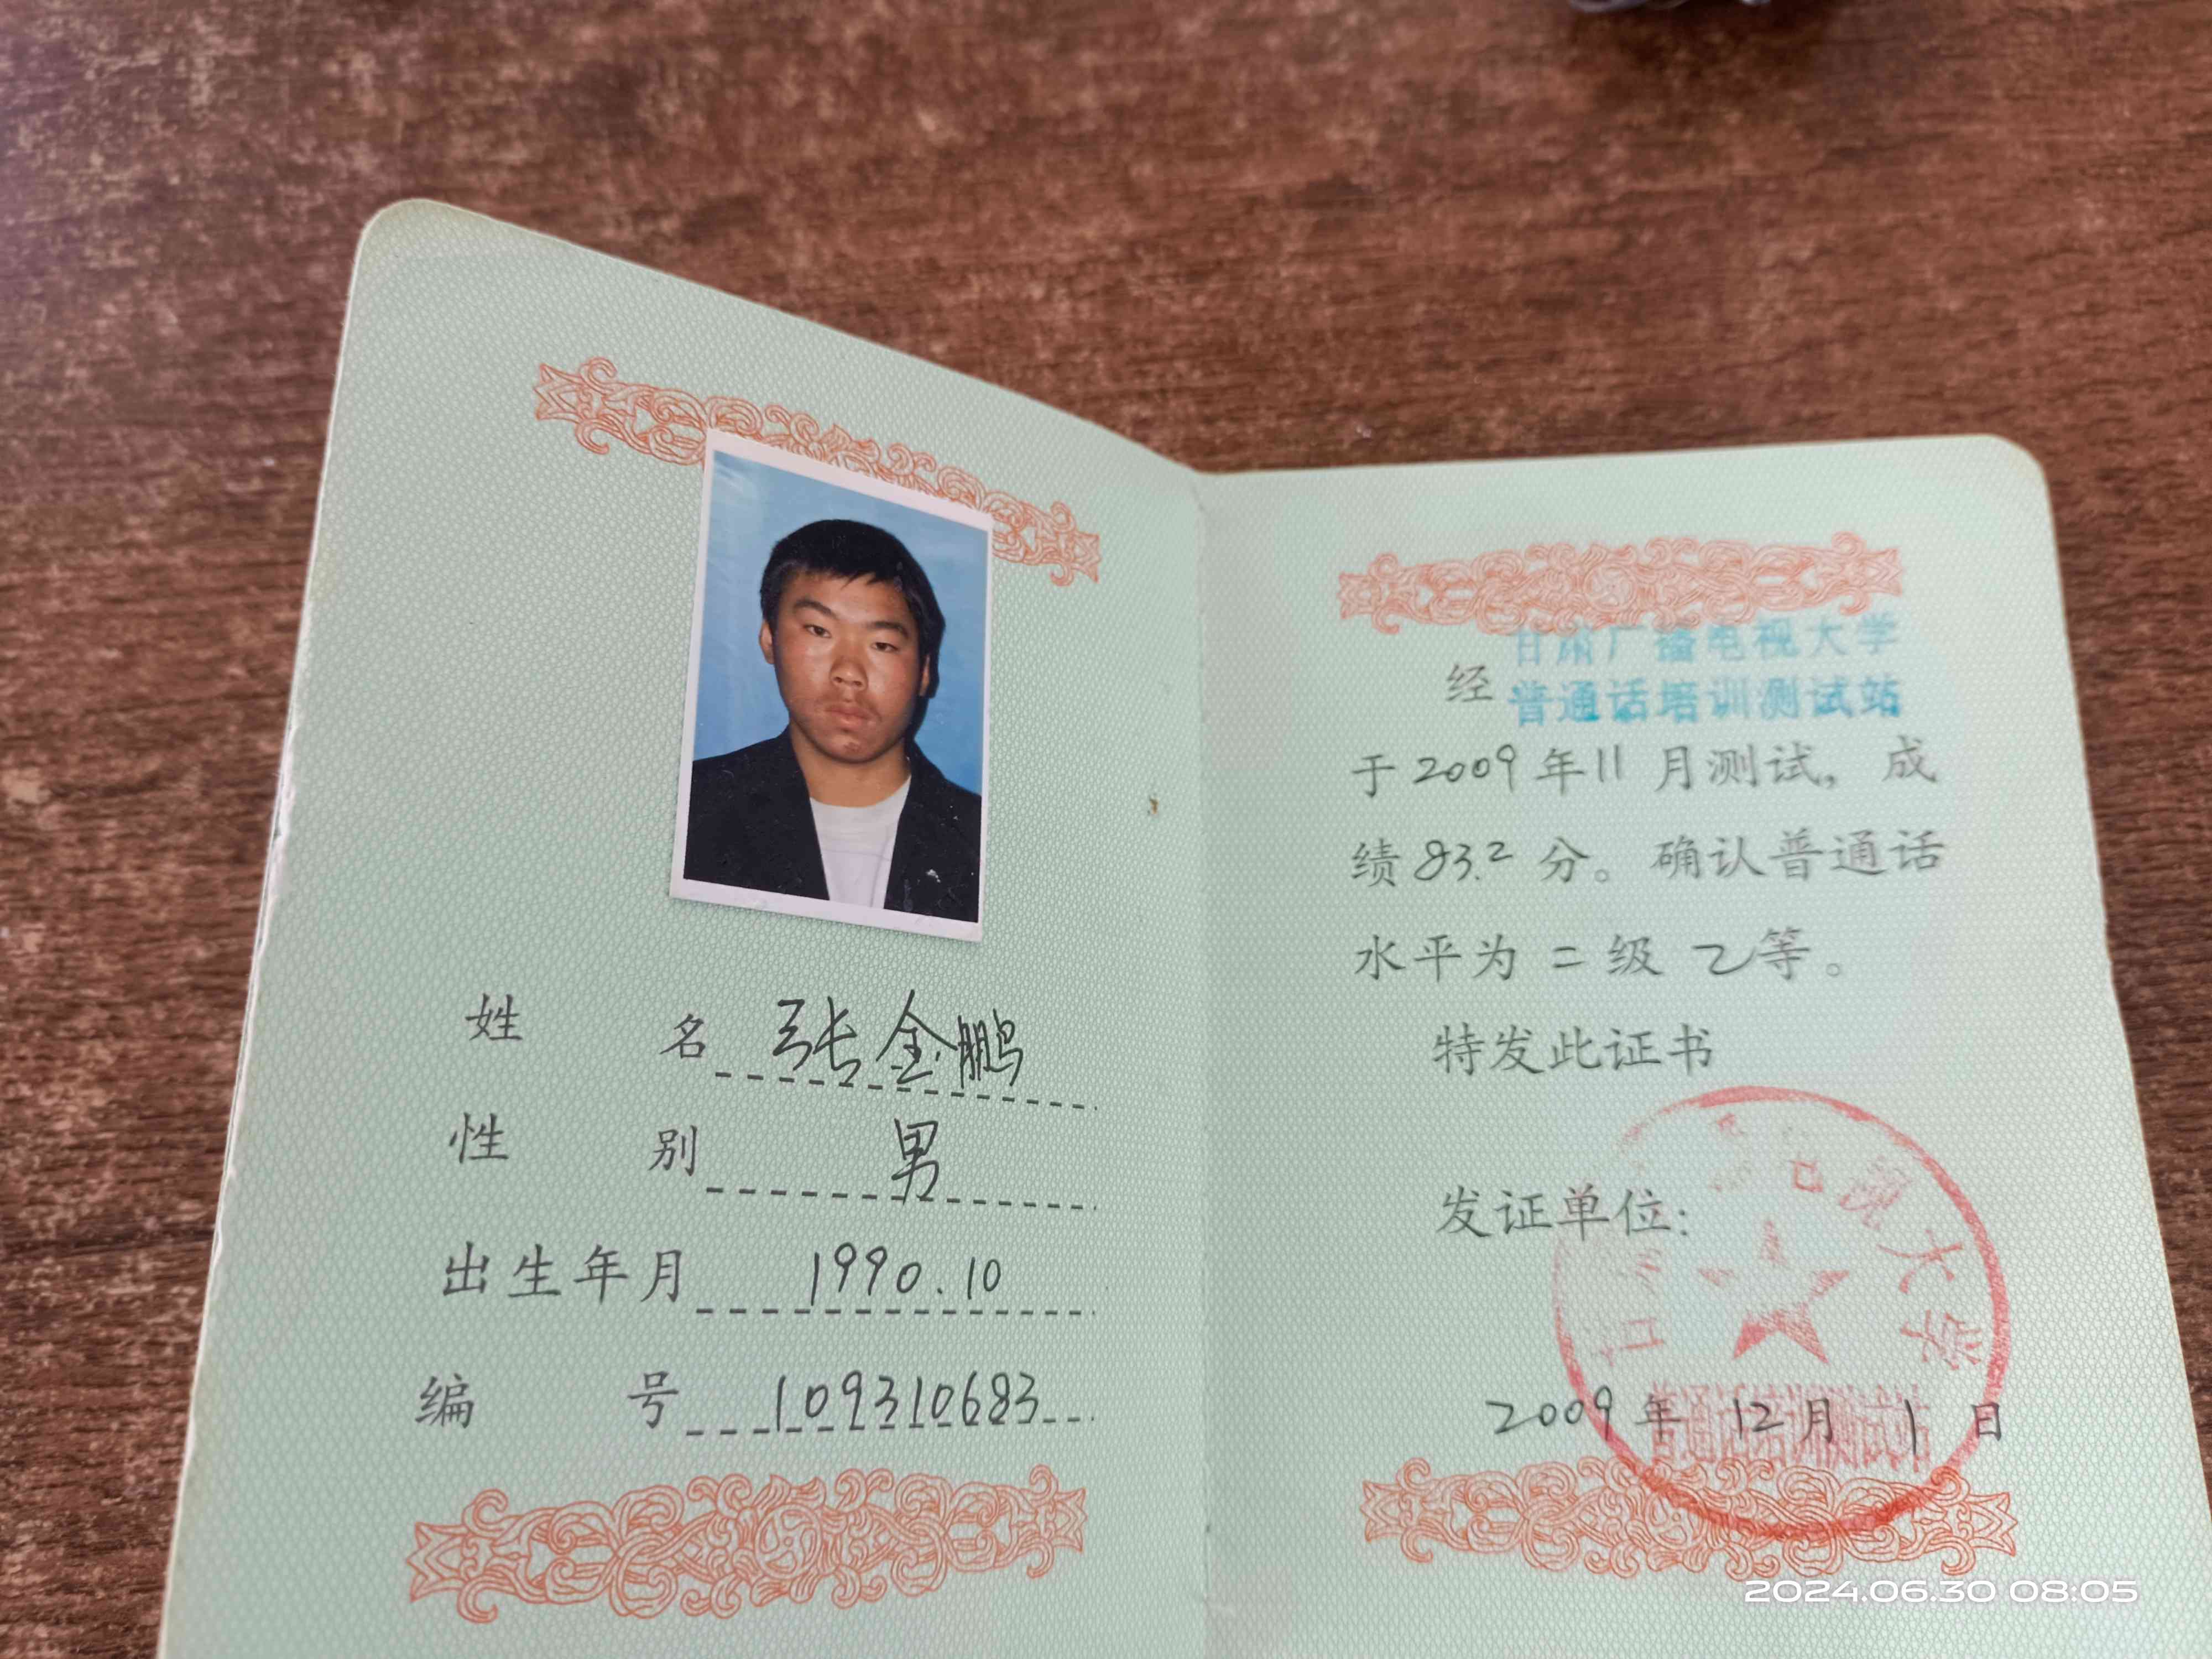 姓名 张金鹏
性别 男
出生年月 1990.10
编号 109310683
经 甘肃广播电视大学
普通话培训测试站
于2009年11月测试，成
绩83.2分。确认普通话
水平为二级乙等。
特发此证书
发证单位：
电视大学
普通话培训测试站
2009年12月1日
2024.06.30 08:05